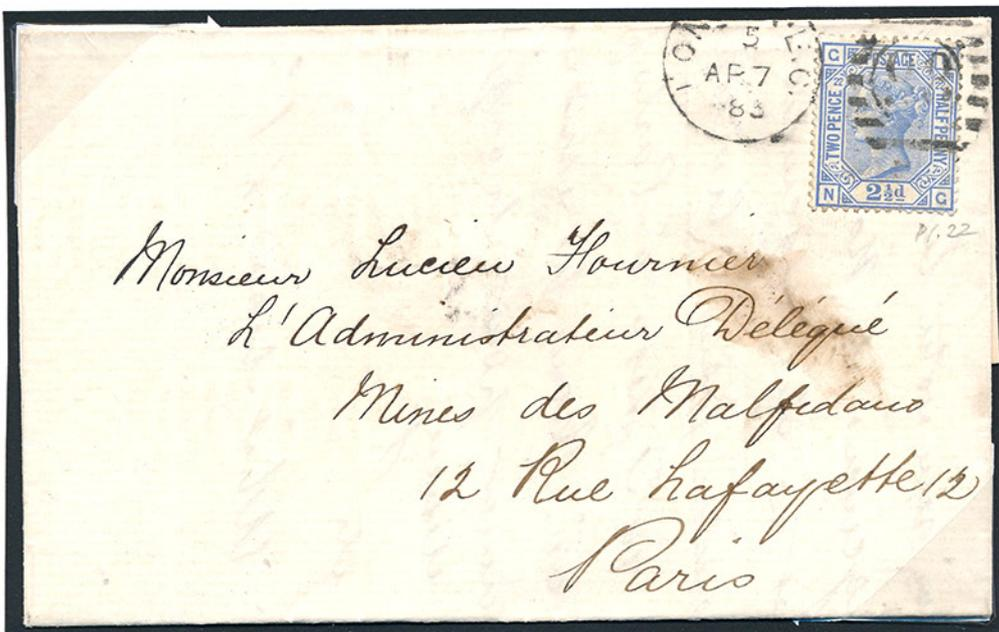 LONDON E.C
5
AP 7
83
G I
POSTAGE
TWO PENCE
HALF PENNY
22
N G
2½d
Pl. 22
Monsieur Lucien Fournier
L'Administrateur Délégué
Mines des Malfidano
12 Rue Lafayette 12
Paris